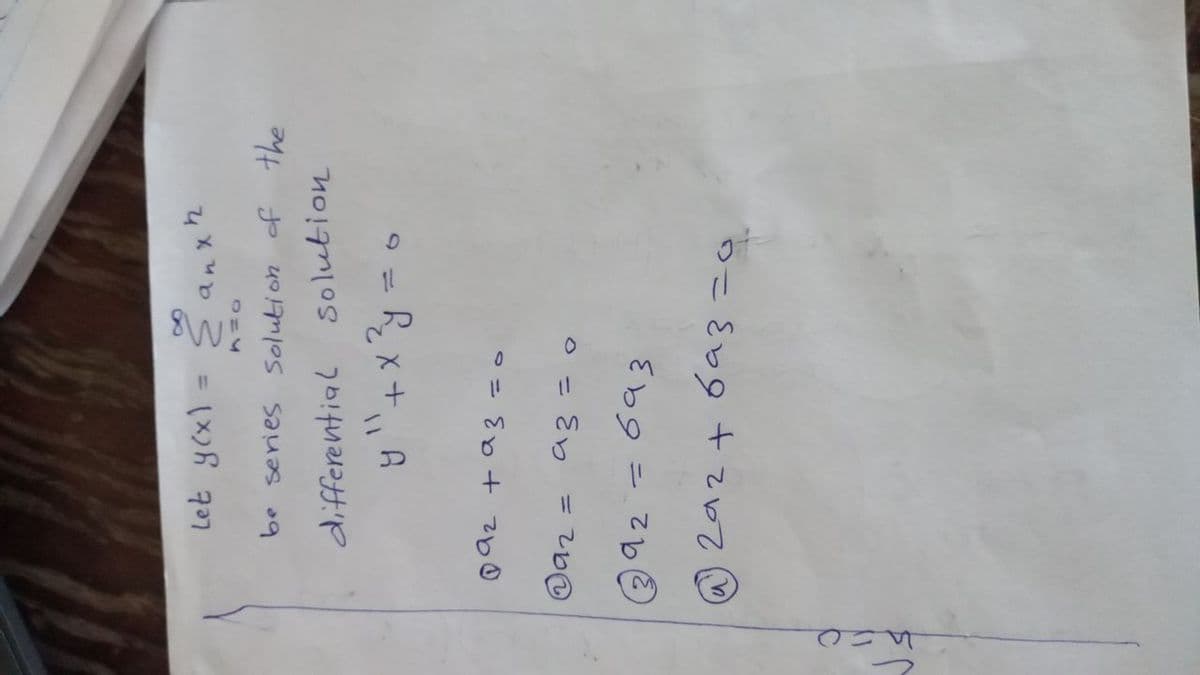 Let y(x) = ∞ Σ n=0 anxⁿ
be series solution of the
differential solution
y'' + x²y = 0
① a2 + a3 = 0
② a2 = a3 = 0
③ a2 = 6a3
④ 2a2 + 6a3 = 0